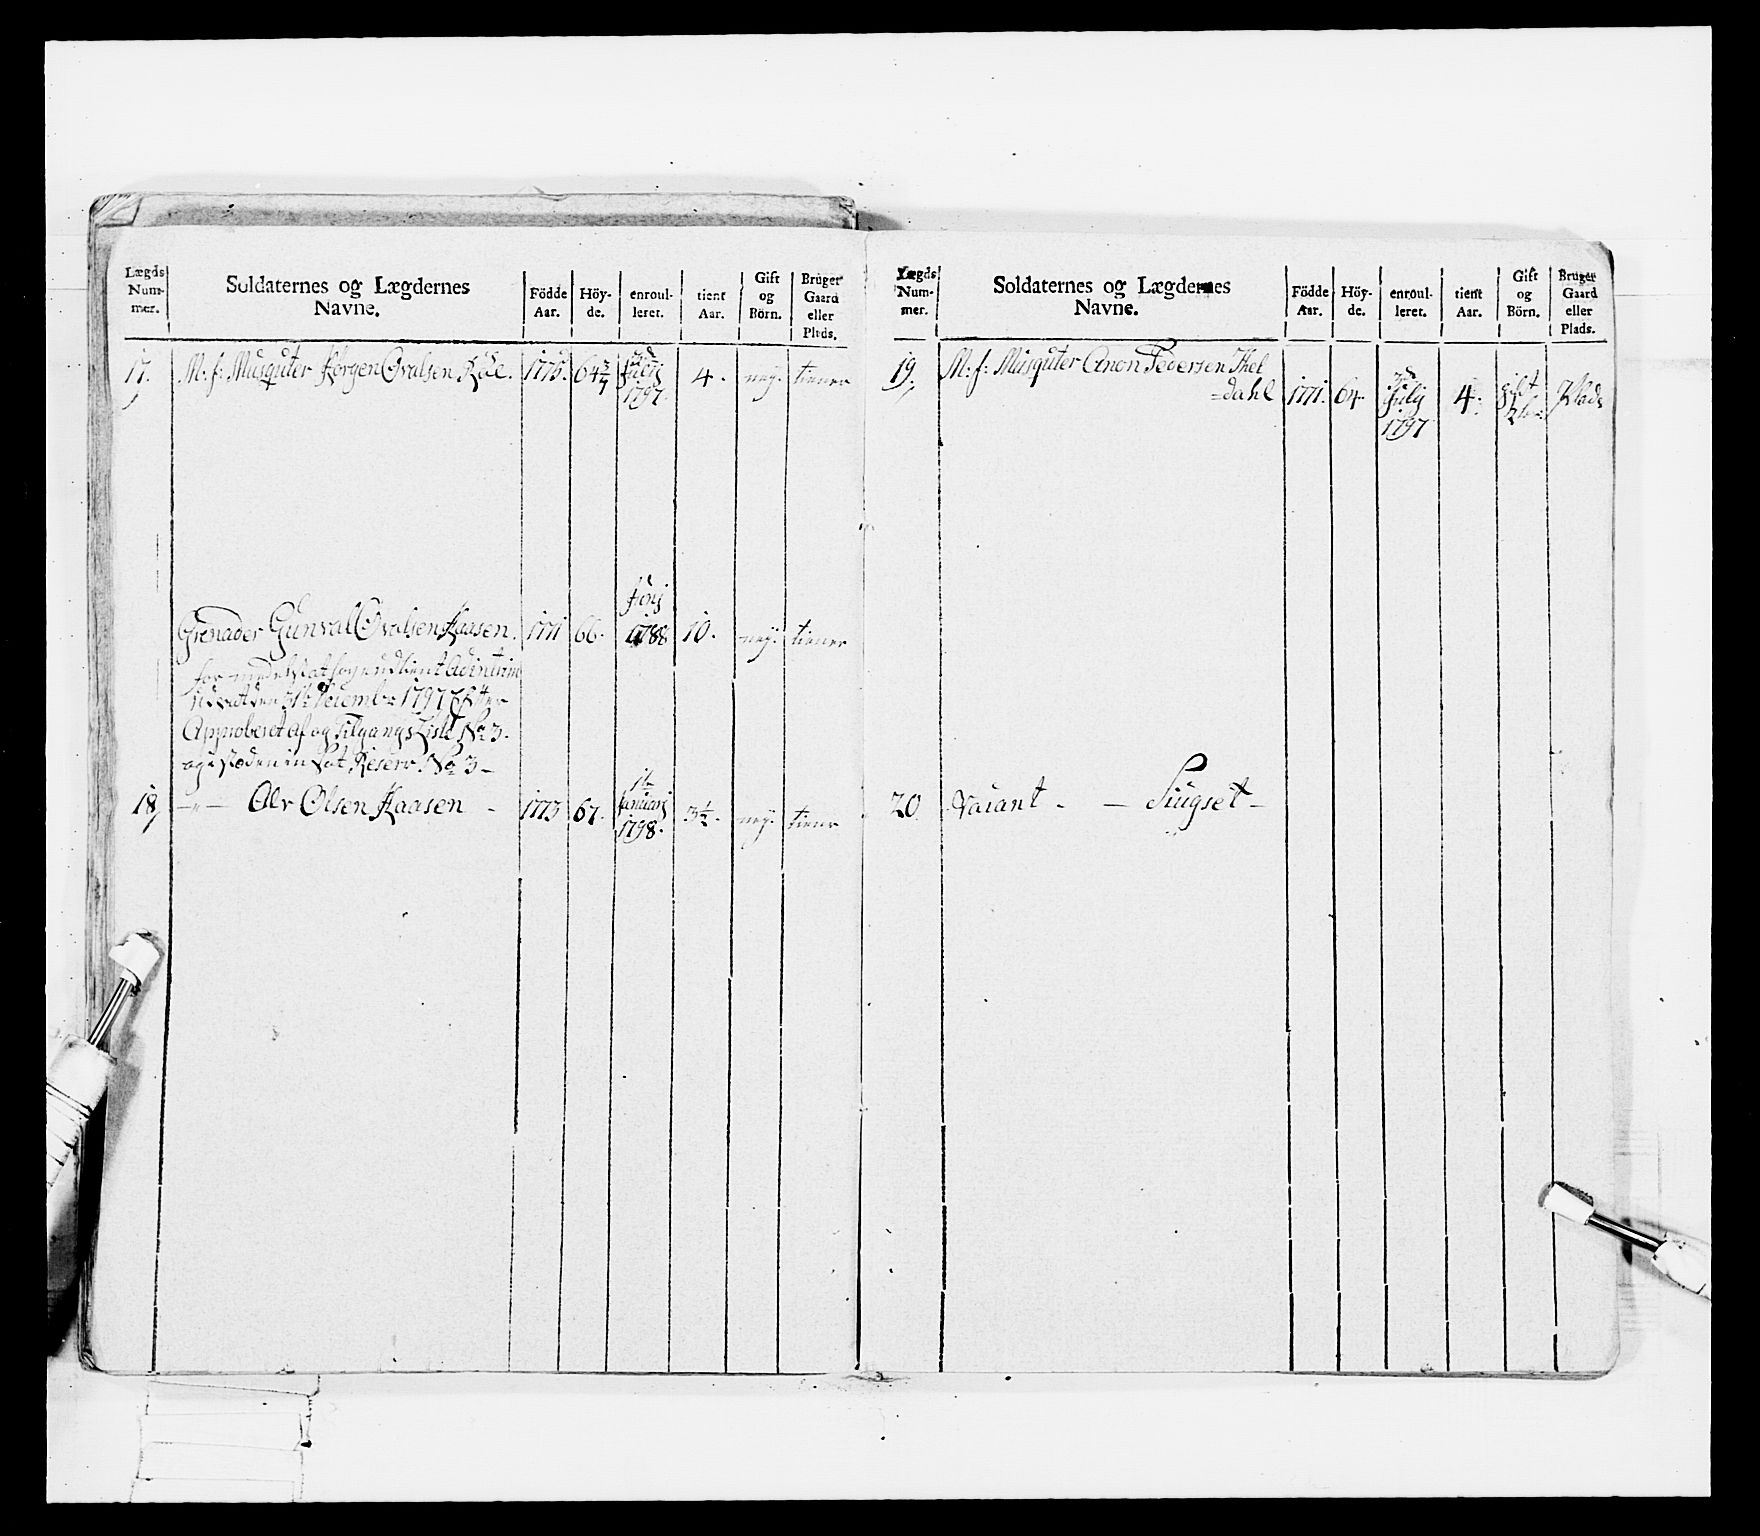 Lægds Num- mer.
Soldaternes og Lægdernes Navne.
Födde Aar.
Höy- de.
enroul- leret.
tient Aar.
Gift og Börn.
Bruger Gaard eller Plads.
17. M: f: Musquter Jörgen Ovalsen 1775. 64¾ July 1797 4. ney. tiener
Junj
Grenader Gunval Ovalsen Kaasen. 1771 66. 1788 10. ney. tiener
1797 Efter
Approberet Af og Tilgangs Liste No 3.
Reserv. No 3 –
18 —"— Alv Olsen Kaasen – 1773 67. Januarj 1798. 3½. ney. tiener
Lægds Num- mer.
Soldaternes og Lægdernes Navne.
Födde Aar.
Höy- de.
enroul- leret.
tient Aar.
Gift og Börn.
Bruger Gaard eller Plads.
19 M: f: Musquter Anon Pedersen Thel
=dahl 1771. 64 July 1797 4. gift Plads
20 Vacant - — Siugset –